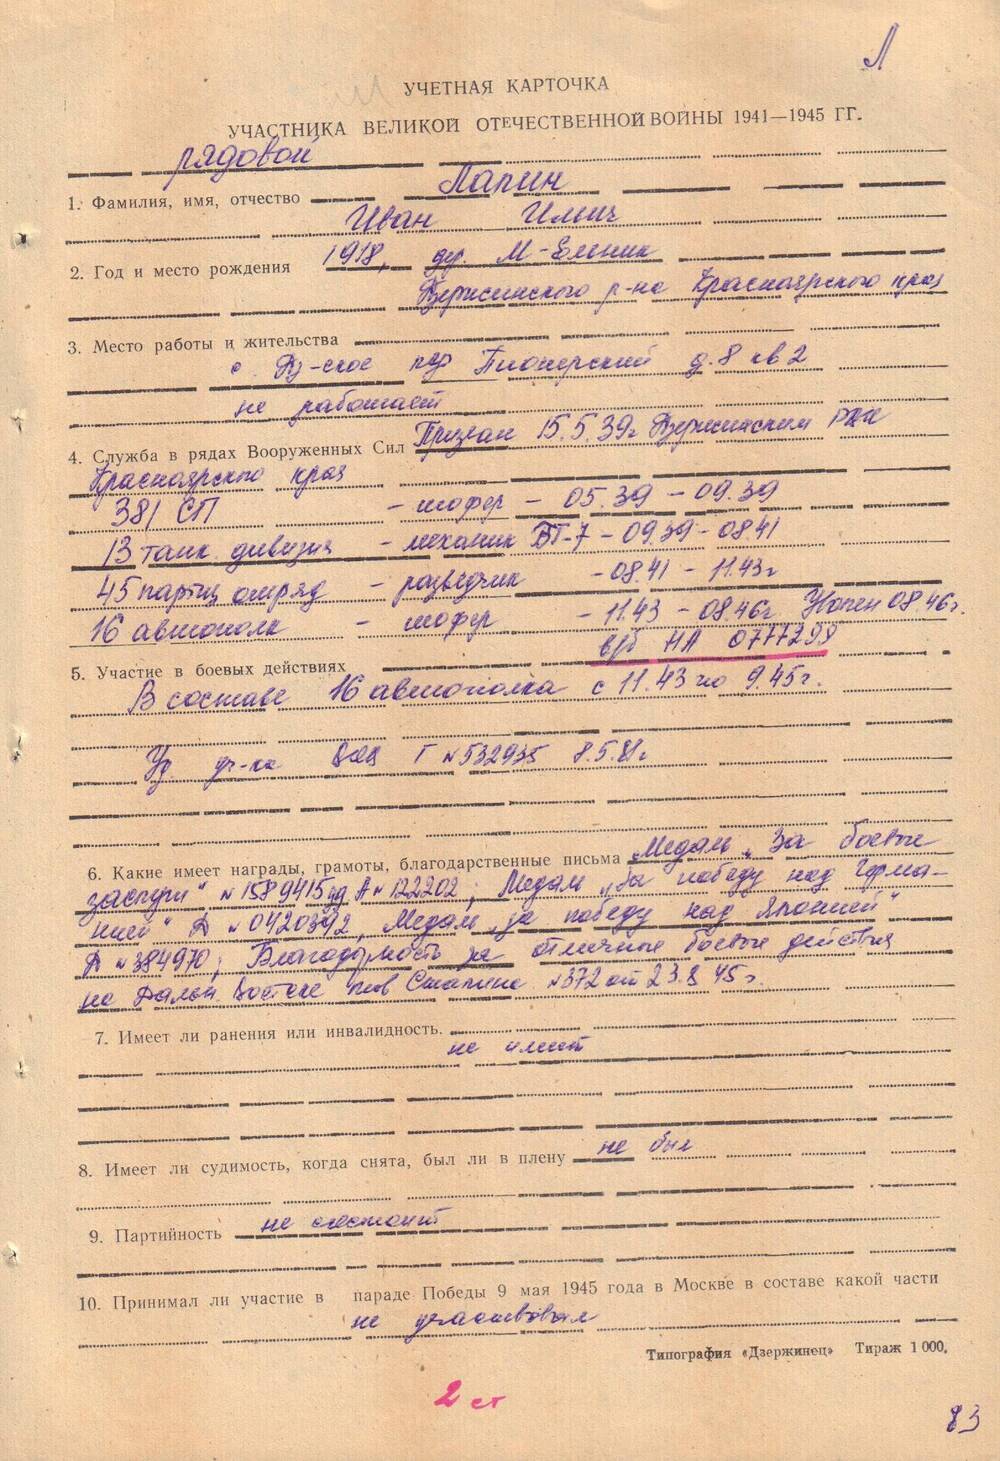 Л
УЧЕТНАЯ КАРТОЧКА
УЧАСТНИКА ВЕЛИКОЙ ОТЕЧЕСТВЕННОЙ ВОЙНЫ 1941—1945 ГГ.
рядовой
1. Фамилия, имя, отчество Лапин
Иван Ильич
2. Год и место рождения 1918, дер. М-Ельник
Дзержинского р-на Красноярского края
3. Место работы и жительства
с. Дз-ское пер Пионерский д.8 кв 2
не работает
4. Служба в рядах Вооруженных Сил Призван 15.5.39г Дзержинским РВК
Красноярского края
381 СП – шофер – 05.39 – 09.39
13 танк. дивизия – механик БТ-7 – 09.39 – 08.41
45 партиз отряд – разведчик – 08.41 – 11.43г
16 автополк – шофер – 11.43 – 08.46г Уволен 08.46г.
в/б НА 0777298
5. Участие в боевых действиях
В составе 16 автополка с 11.43 по 9.45г.
Уд. уч-ка ВОВ Г №532935 8.5.81г
6. Какие имеет награды, грамоты, благодарственные письма Медаль „За боевые
заслуги“ №1589415 уд А №122202; Медаль „За победу над Герма-
нией“ Д №0420392, Медаль „за победу над Японией“
Д №384970; Благодарность за отличные боевые действия
на Дальн. Востоке тов Сталина №372 от 23.8 45г.
7. Имеет ли ранения или инвалидность.
не имеет
8. Имеет ли судимость, когда снята, был ли в плену не был
9. Партийность не состоит
10. Принимал ли участие в параде Победы 9 мая 1945 года в Москве в составе какой части
не участвовал
Типография «Дзержинец» Тираж 1 000.
2 ст
83